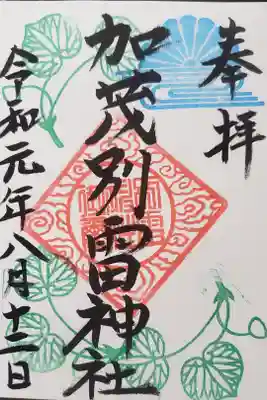 奉拝
加茂別雷神社
令和元年八月十三日